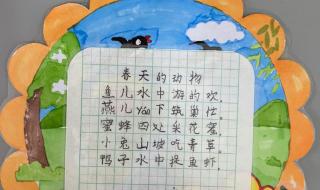 春天的动物
鱼儿水中游的欢，
燕儿yán下筑巢忙。
蜜蜂四处采花蜜，
小兔山坡吃青草。
鸭子水中捉鱼虾。